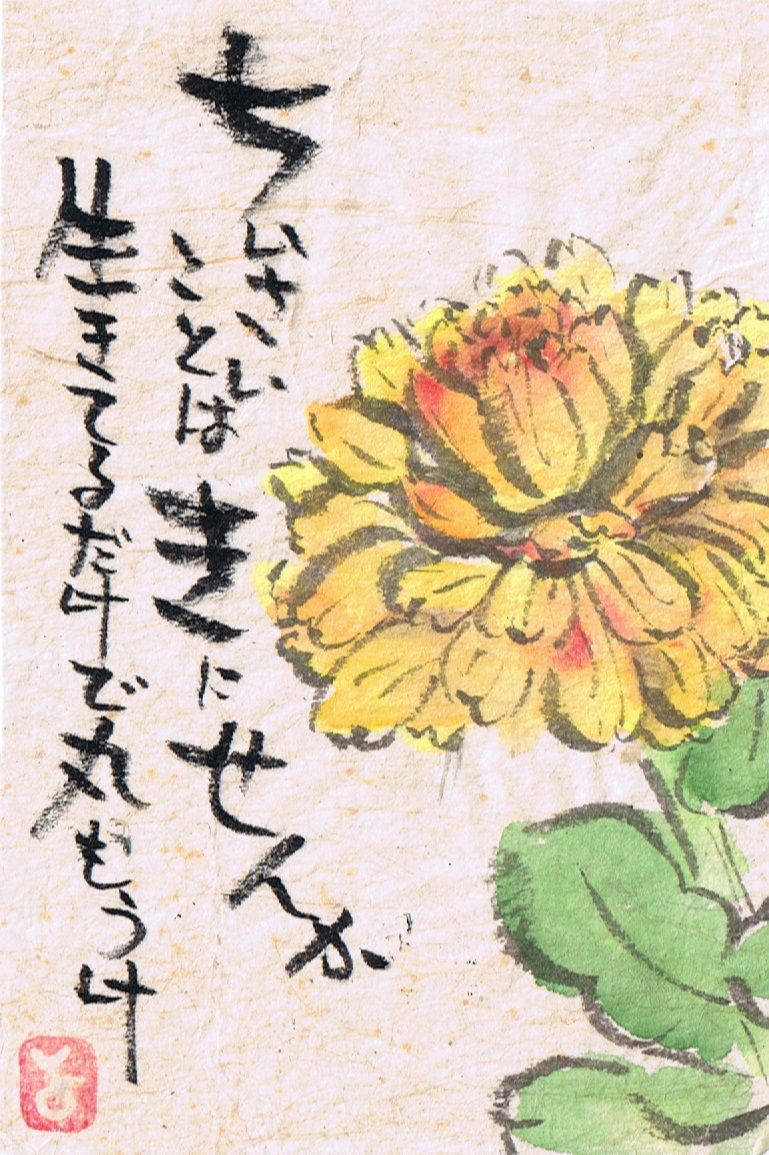 ちいさい
ことは きにせんか
生きてるだけで丸もうけ